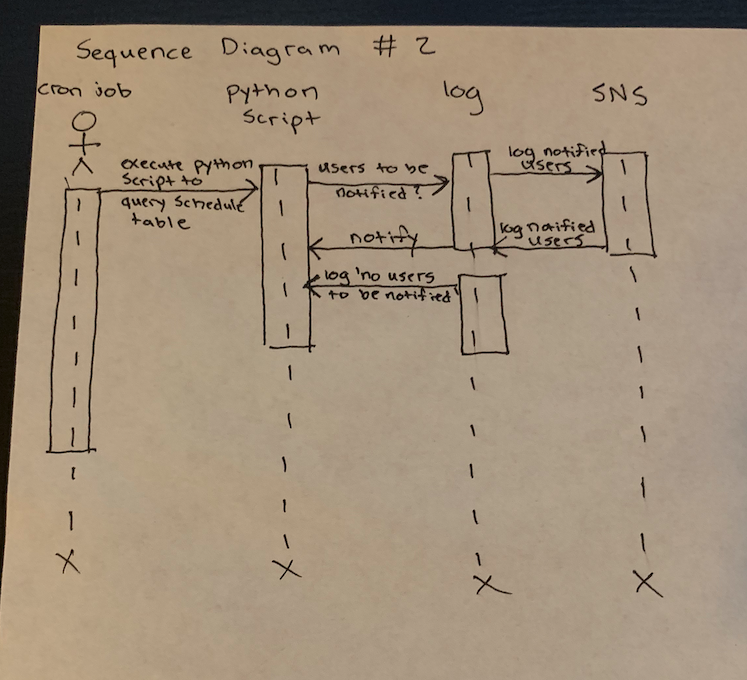 Sequence Diagram # 2
cron job
python
script
log
SNS
execute python
script to
query schedule
table
users to be
notified?
log notified
users
notify
log notified
users
log 'no users
to be notified'
X
X
X
X